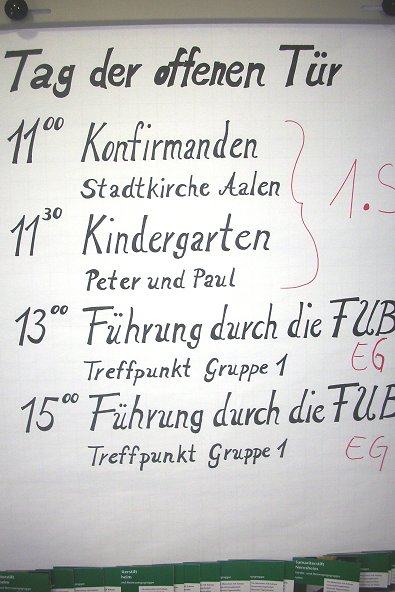 Tag der offenen Tür
11⁰⁰ Konfirmanden
Stadtkirche Aalen
1.S
11³⁰ Kindergarten
Peter und Paul
13⁰⁰ Führung durch die FUB
Treffpunkt Gruppe 1 EG
15⁰⁰ Führung durch die FUB
Treffpunkt Gruppe 1 EG